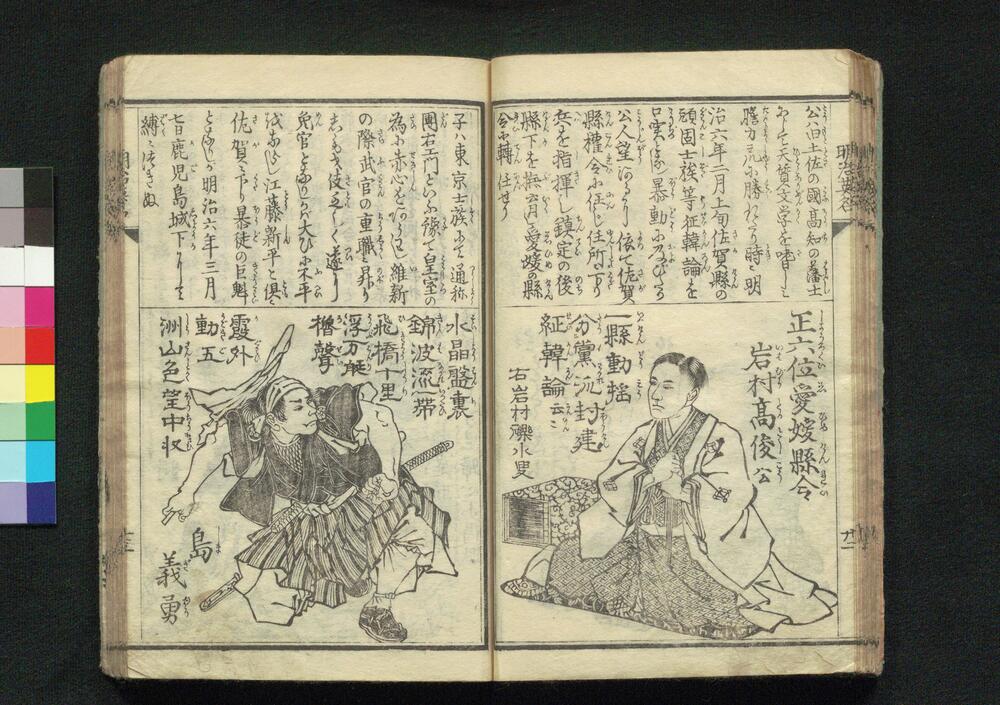 公ハ土佐の國高知の藩士
にして天資文学を嗜しミ
膽力衆に勝れたり時に明
治六年二月上旬佐賀縣の
頑固士族等征韓論を
口実とし暴動に及びたる
公人望あるより依て佐賀
縣權令に任じ住所に下り
兵を指揮し鎮定の後
縣下を撫育し愛媛の縣
令に轉任せり
正六位愛媛縣令
岩村高俊公
一縣動揺
分黨派封建
征韓論云々
右岩村礫水叟
子ハ東京士族にて通称
團右エ門といふ豫て皇室の
為に赤心をあらはし維新
の際武官の重職に昇り
免官となりしが大ひに不平
江藤新平と倶
佐賀に下り暴徒の巨魁
となりしが明治六年三月
七日鹿児島城下にて
縛につきぬ
水晶盤裏
錦波流帯
飛橋十里
浮万艇
櫓聲
霞外
動五
洲山色望中収
島
義勇